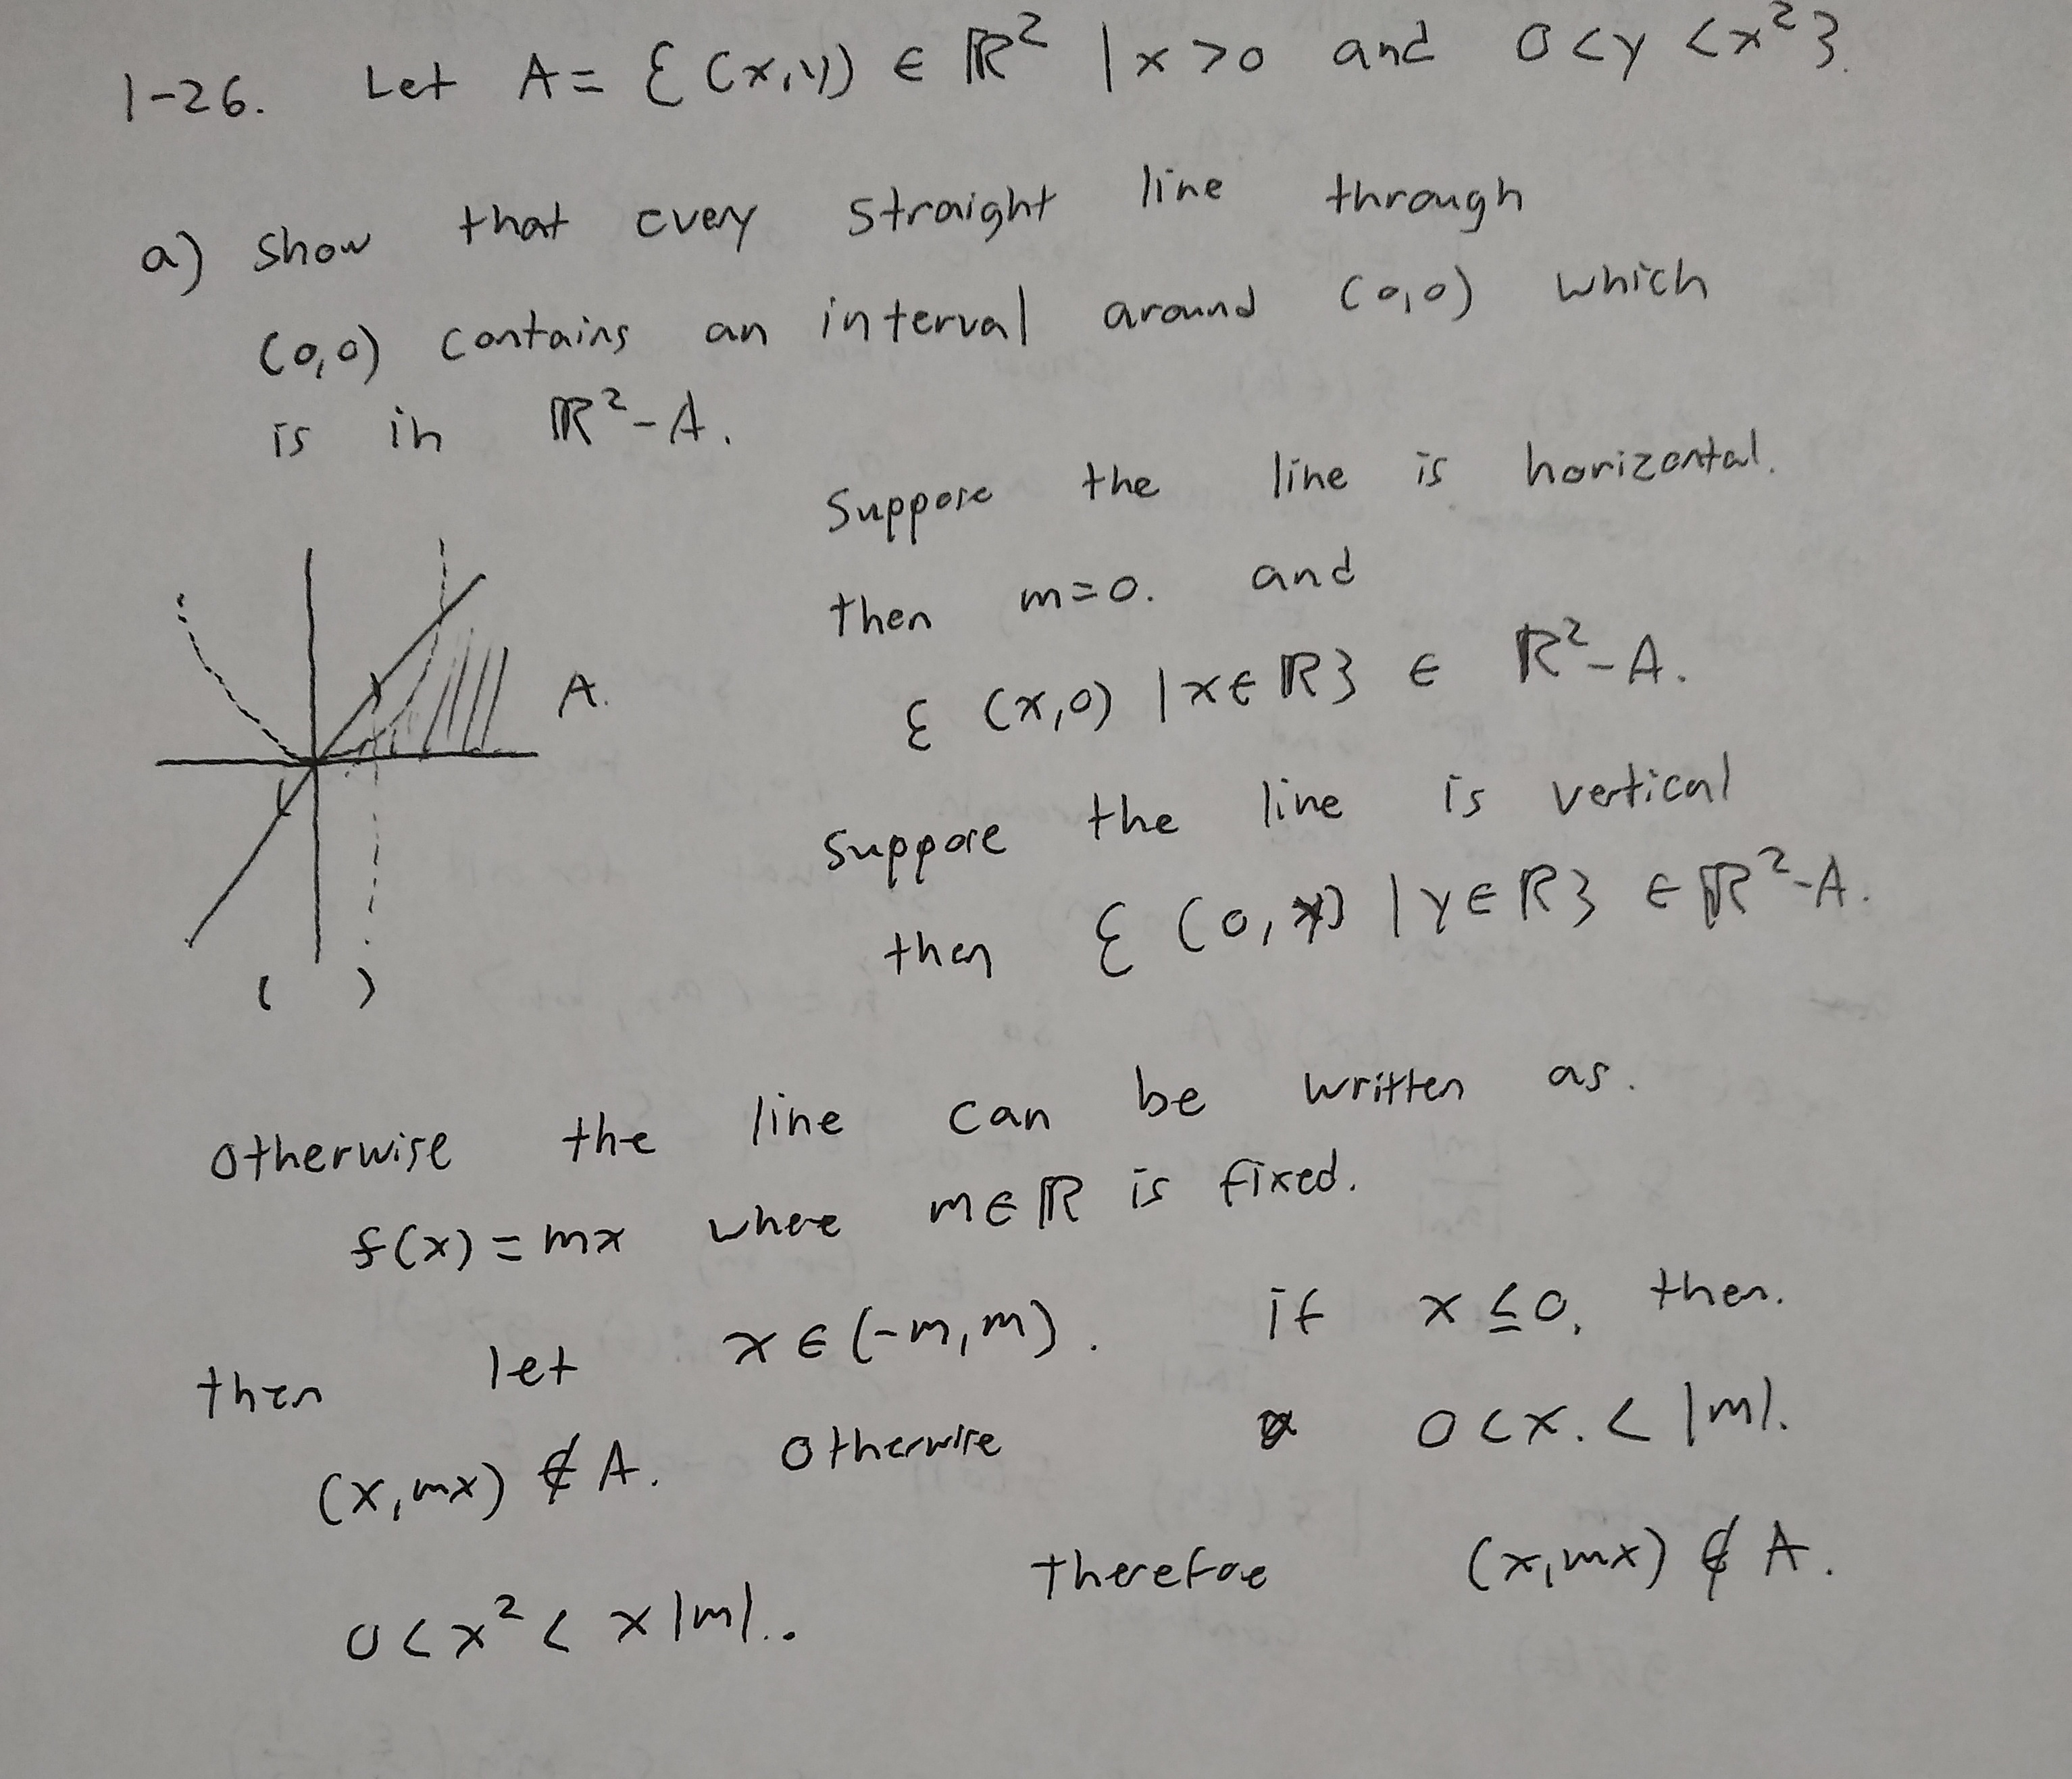 1-26. Let A = { (x,y) ∈ ℝ² | x > 0 and 0 < y < x² }.
a) show that every straight line through
(0,0) contains an interval around (0,0) which
is in ℝ² - A.
Suppose the line is horizontal.
then m = 0. and
{ (x,0) | x ∈ ℝ } ∈ ℝ² - A.
A.
suppose the line is vertical
then { (0,y) | y ∈ ℝ } ∈ ℝ² - A.
( )
otherwise the line can be written as.
f(x) = mx where m ∈ ℝ is fixed.
then let x ∈ (-m, m). if x ≤ 0, then.
(x, mx) ∉ A. Otherwise 0 < x. < |m|.
0 < x² < x|m|.. therefore (x, mx) ∉ A.